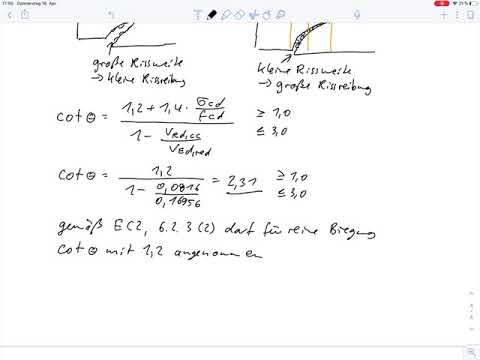 11:50 Donnerstag 16. Apr.
21 %
große Rissweite
→ kleine Rissreibung
kleine Rissweite
→ große Rissreibung
cot θ = (1,2 + 1,4 · σcd / fcd) / (1 - VRd,cc / VEd,red) ≥ 1,0 ≤ 3,0
cot θ = 1,2 / (1 - 0,0816 / 0,16956) = 2,31 ≥ 1,0 ≤ 3,0
gemäß EC2, 6.2.3 (2) darf für reine Biegung
cot θ mit 1,2 angenommen